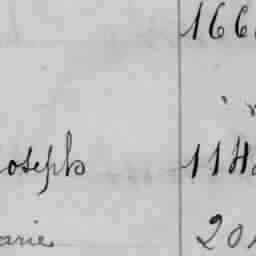 166
oseph 114
arie 20